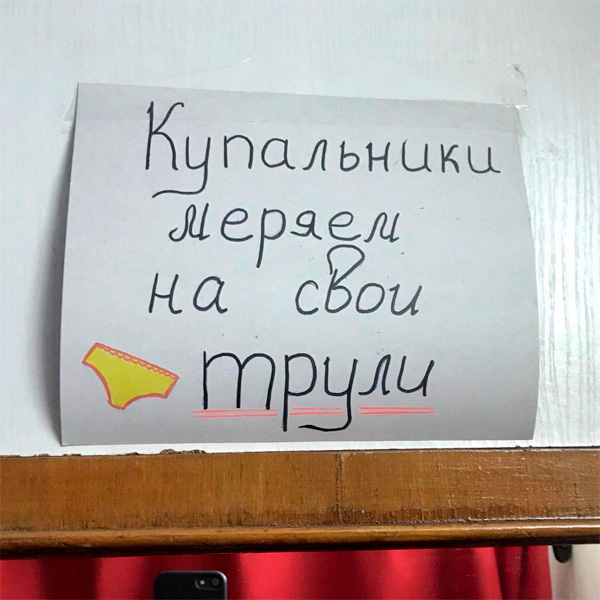 Купальники
меряем
на свои
трули